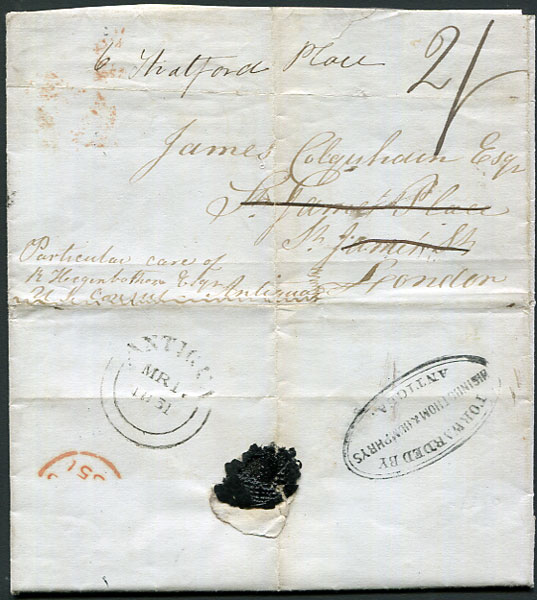 6 Stratford Place
2/
James Colquhoun Esqr
St James Place
St James St
London
Particular care of
Higginbotham Esqr Antigua
ANTIGUA
MR 1
1851
FORWARDED BY
HIGINBOTHOM & HUMPHRYS
ANTIGUA